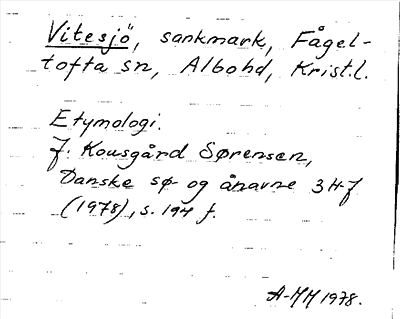 Vitesjö, sankmark, Fågel-
tofta sn, Albohd, Krist.l.
Etymologi.
J. Kousgård Sørensen,
Danske sø- og ånavne 3 H-J
(1978), s. 194 f.
A-MM 1978.